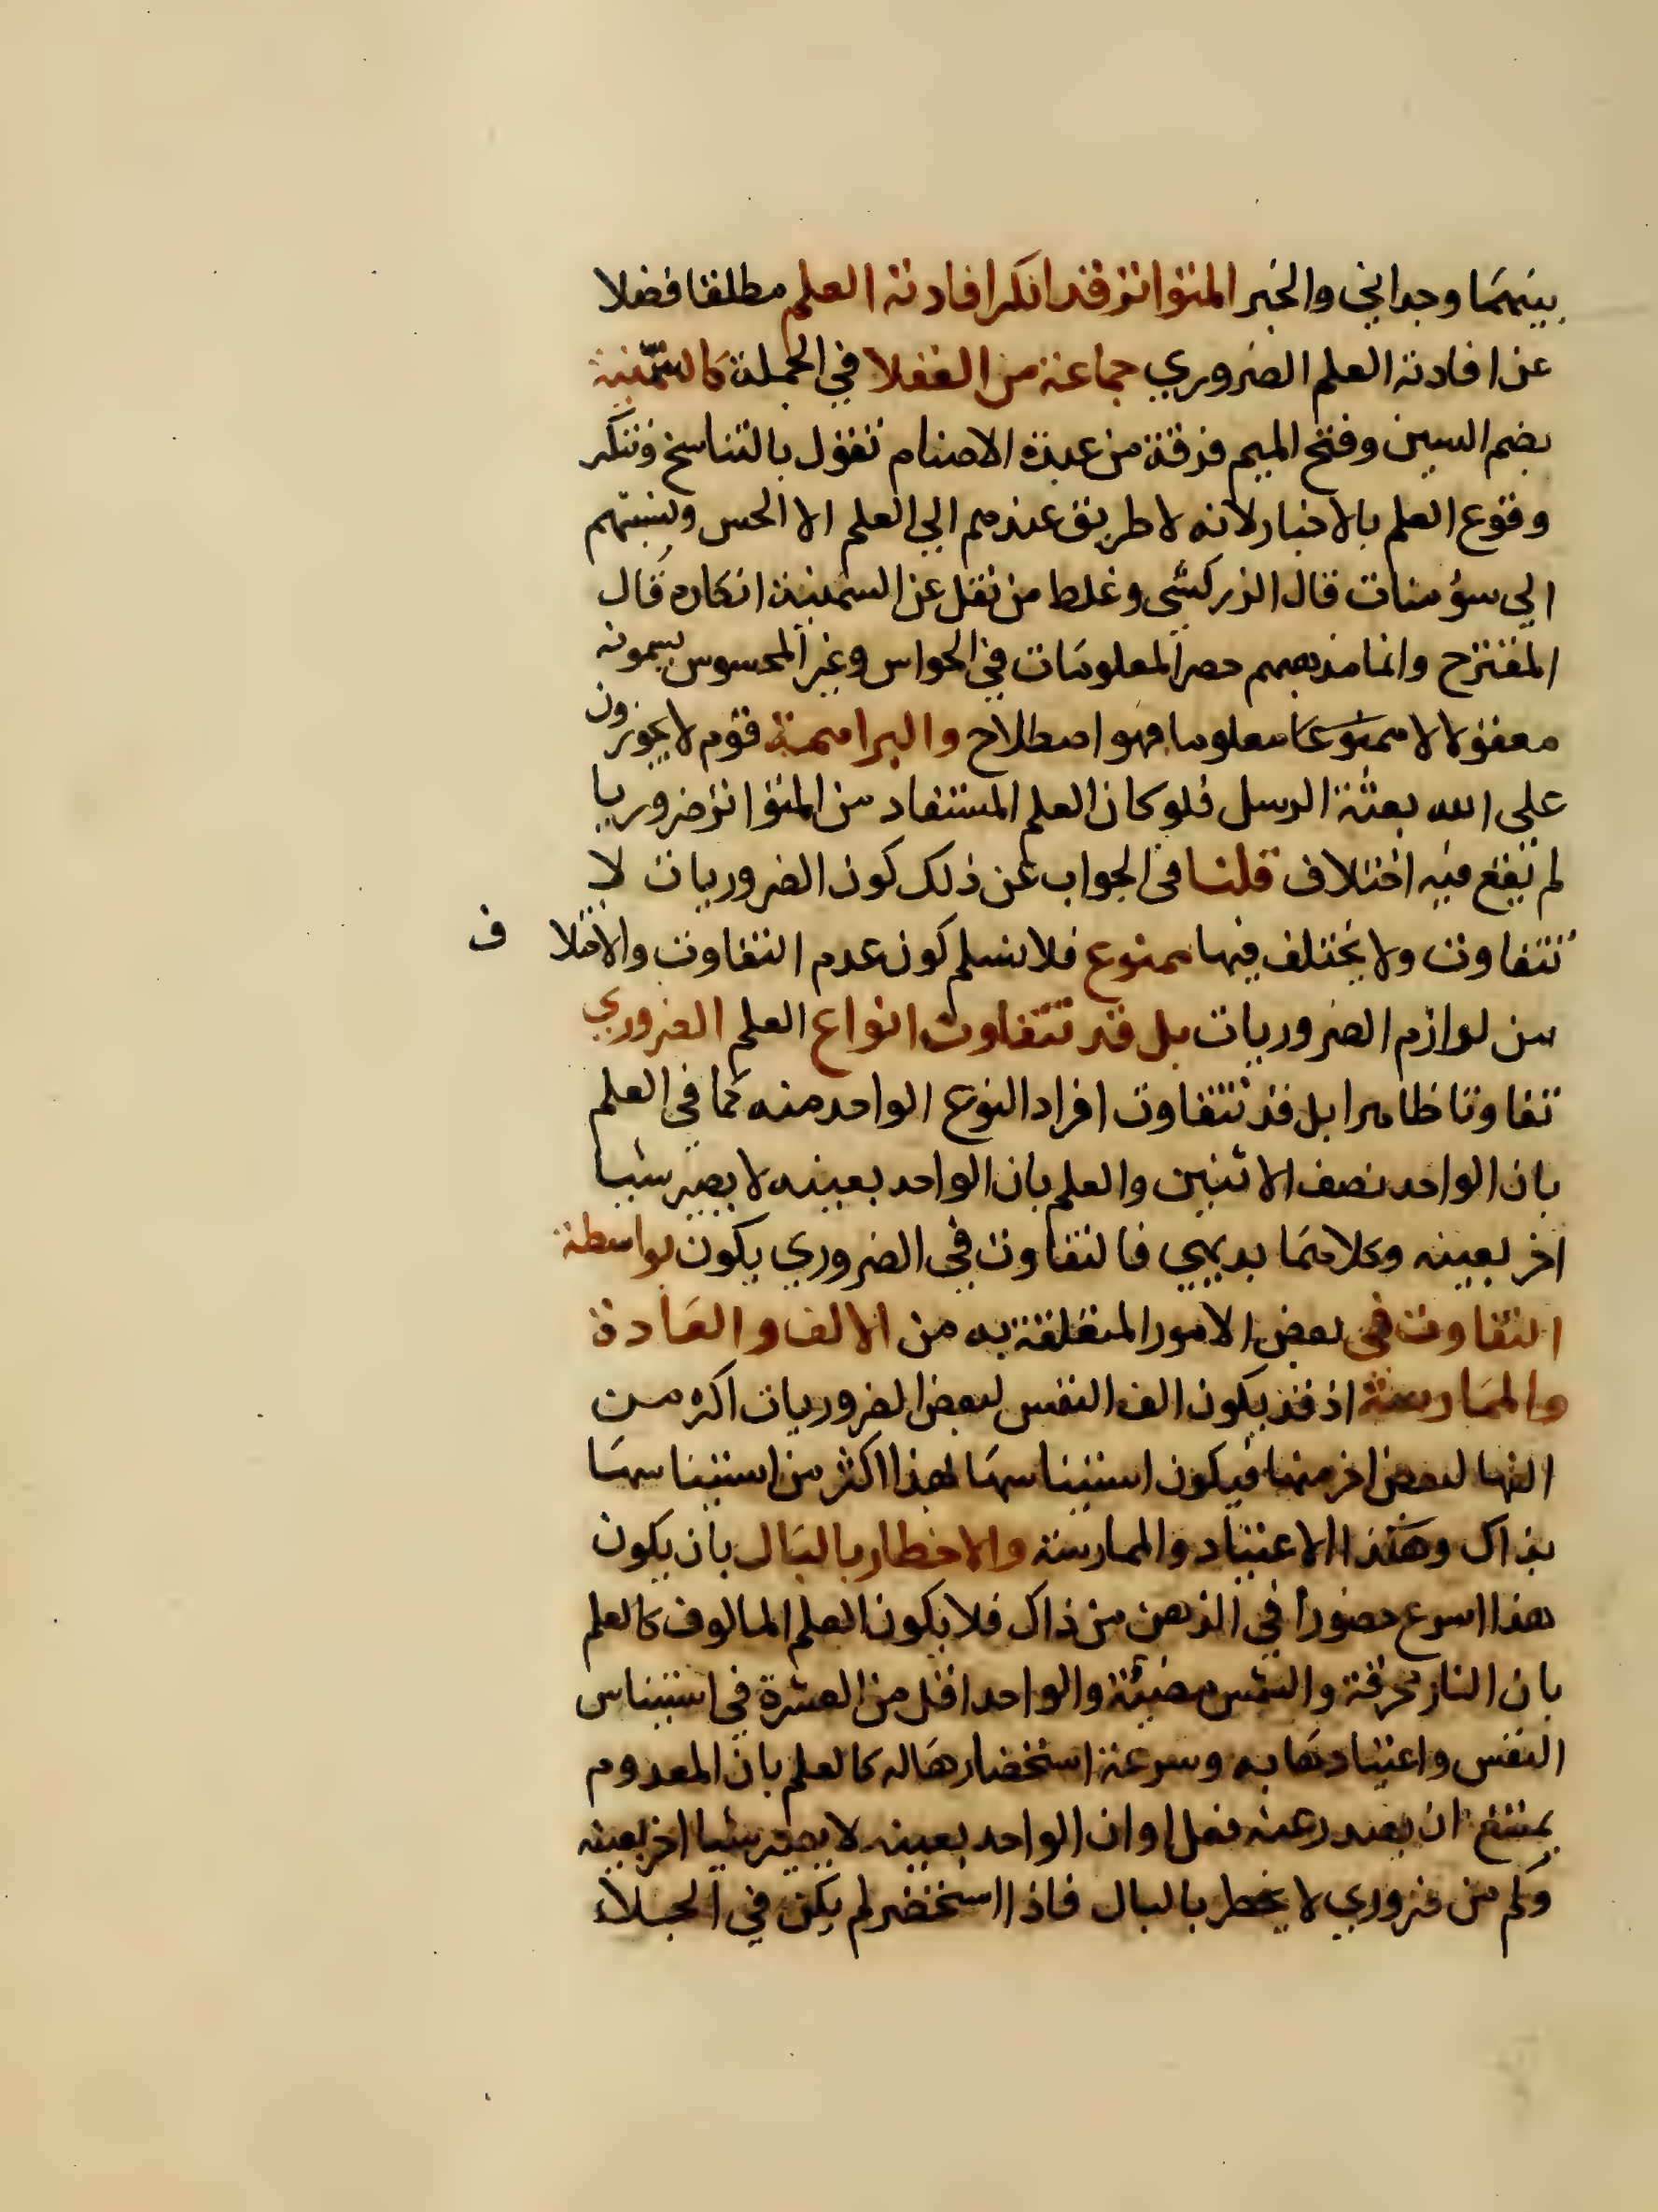 بينهما وجداني والخبر المتواتر قد انكر افادته العلم مطلقا فضلا
عن افادته العلم الضروري جماعة من العقلا في الجملة كالسّمنية
بضم السين وفتح الميم فرقة من عبدة الاصنام تقول بالتناسخ وتنكر
وقوع العلم بالاخبار لانه لا طريق عندهم الي العلم الا الحس ونسبتهم
الي سومنات قال الزركشي وغلط من نقل عن السمنية انكاره قال
المقترح وانما مذهبهم حصر المعلومات في الحواس وغير المحسوس يسمونه
معقولا لا معلوما فهو اصطلاح والبراهمة قوم لا يجوزون
علي الله بعثة الرسل فلو كان العلم المستفاد من المتواتر ضروريا
لم يقع فيه اختلاف قلنا في الجواب عن ذلك كون الضروريات لا
تتفاوت ولا يختلف فيها ممنوع فلا نسلم كون عدم التفاوت والاختلاف
من لوازم الضروريات بل قد تتفاوت انواع العلم الضروري
تفاوتا ظاهرا بل قد تتفاوت افراد النوع الواحد منه كما في العلم
بان الواحد نصف الاثنين والعلم بان الواحد بعينه لا يصير شيا
اخر بعينه وكلاهما بديهي فالتفاوت في الضروري يكون بواسطة
التفاوت في بعض الامور المتعلقة به من الالف والعادة
والممارسة اذ قد يكون الف النفس لبعض الضروريات اكثر من
الفها لبعض اخر منها فيكون استيناسها لهذا اكثر من استيناسها
بذاك وهكذا الاعتياد والممارسة والاخطار بالبال بان يكون
هذا اسرع حضورا في الذهن من ذاك فلا يكون العلم المالوف كالعلم
بان النار محرقة والشمس مضيئة والواحد اقل من العشرة في استيناس
النفس واعتيادها به وسرعة استحضارها له كالعلم بان المعدوم
يمتنع ان يصدر عنه فعل او ان الواحد بعينه لا يصير شيا اخر بعينه
وكم من ضروري لا يخطر بالبال فاذا استحضر لم يكن في الجلاء